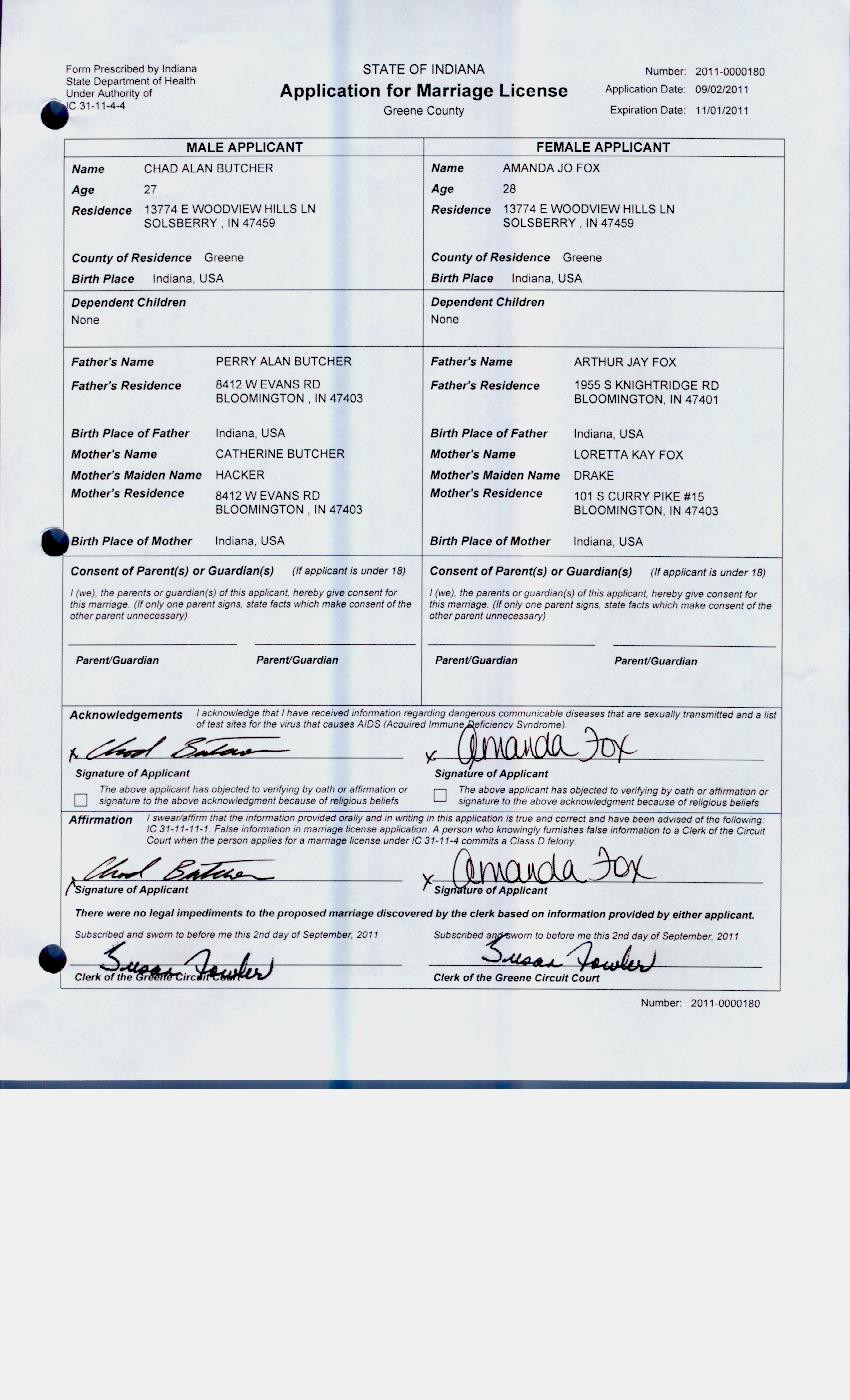 Form Prescribed by Indiana
State Department of Health
Under Authority of
IC 31-11-4-4
STATE OF INDIANA
Application for Marriage License
Greene County
Number: 2011-0000180
Application Date: 09/02/2011
Expiration Date: 11/01/2011
MALE APPLICANT
Name CHAD ALAN BUTCHER
Age 27
Residence 13774 E WOODVIEW HILLS LN
SOLSBERRY , IN 47459
County of Residence Greene
Birth Place Indiana, USA
Dependent Children
None
Father's Name PERRY ALAN BUTCHER
Father's Residence 8412 W EVANS RD
BLOOMINGTON , IN 47403
Birth Place of Father Indiana, USA
Mother's Name CATHERINE BUTCHER
Mother's Maiden Name HACKER
Mother's Residence 8412 W EVANS RD
BLOOMINGTON , IN 47403
Birth Place of Mother Indiana, USA
Consent of Parent(s) or Guardian(s) (If applicant is under 18)
I (we), the parents or guardian(s) of this applicant, hereby give consent for
this marriage. (If only one parent signs, state facts which make consent of the
other parent unnecessary)
Parent/Guardian Parent/Guardian
FEMALE APPLICANT
Name AMANDA JO FOX
Age 28
Residence 13774 E WOODVIEW HILLS LN
SOLSBERRY , IN 47459
County of Residence Greene
Birth Place Indiana, USA
Dependent Children
None
Father's Name ARTHUR JAY FOX
Father's Residence 1955 S KNIGHTRIDGE RD
BLOOMINGTON, IN 47401
Birth Place of Father Indiana, USA
Mother's Name LORETTA KAY FOX
Mother's Maiden Name DRAKE
Mother's Residence 101 S CURRY PIKE #15
BLOOMINGTON, IN 47403
Birth Place of Mother Indiana, USA
Consent of Parent(s) or Guardian(s) (If applicant is under 18)
I (we), the parents or guardian(s) of this applicant, hereby give consent for
this marriage. (If only one parent signs, state facts which make consent of the
other parent unnecessary)
Parent/Guardian Parent/Guardian
Acknowledgements I acknowledge that I have received information regarding dangerous communicable diseases that are sexually transmitted and a list
of test sites for the virus that causes AIDS (Acquired Immune Deficiency Syndrome).
x Chad Butcher x Amanda Fox
Signature of Applicant Signature of Applicant
The above applicant has objected to verifying by oath or affirmation or
signature to the above acknowledgment because of religious beliefs
The above applicant has objected to verifying by oath or affirmation or
signature to the above acknowledgment because of religious beliefs
Affirmation I swear/affirm that the information provided orally and in writing in this application is true and correct and have been advised of the following:
IC 31-11-11-1. False information in marriage license application. A person who knowingly furnishes false information to a Clerk of the Circuit
Court when the person applies for a marriage license under IC 31-11-4 commits a Class D felony.
x Chad Butcher x Amanda Fox
Signature of Applicant Signature of Applicant
There were no legal impediments to the proposed marriage discovered by the clerk based on information provided by either applicant.
Subscribed and sworn to before me this 2nd day of September, 2011 Subscribed and sworn to before me this 2nd day of September, 2011
Susan Fowler Susan Fowler
Clerk of the Greene Circuit Court Clerk of the Greene Circuit Court
Number: 2011-0000180